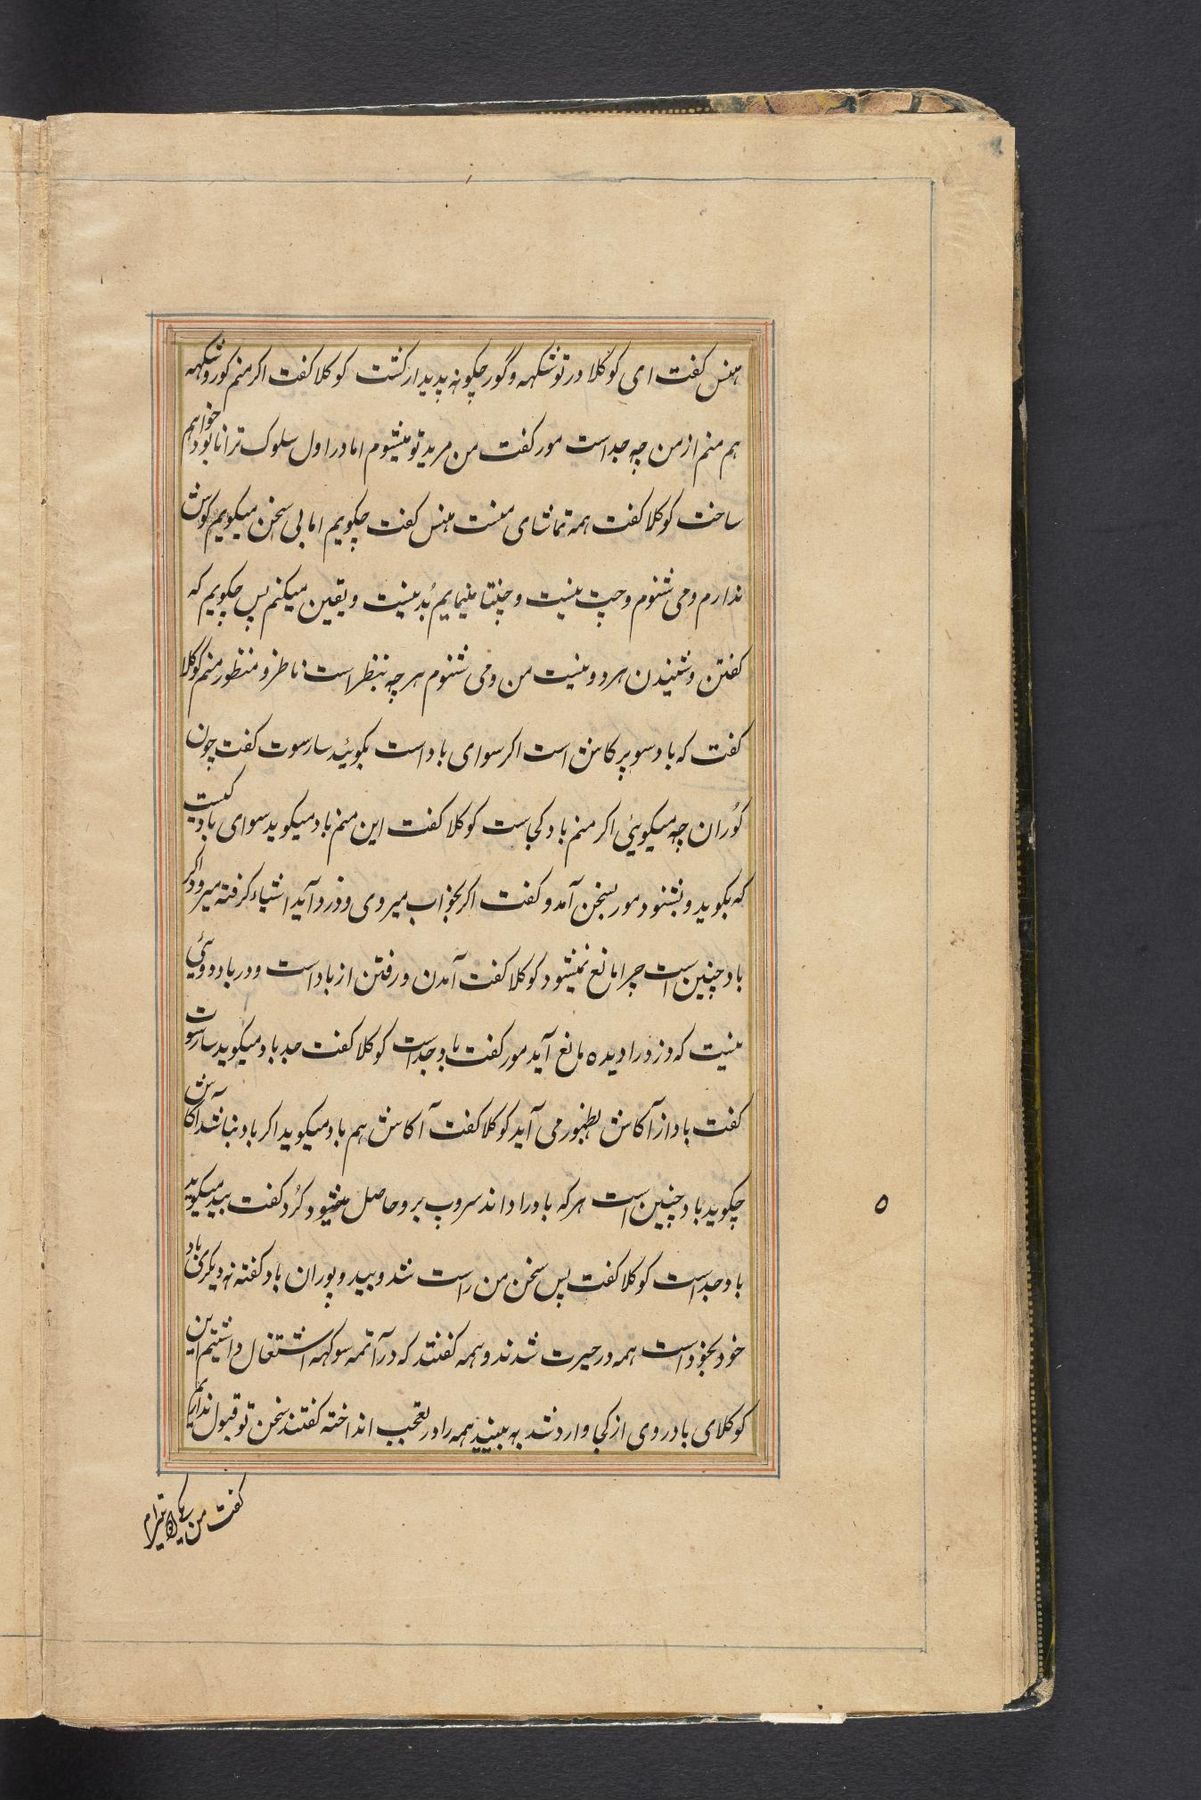 هنس گفت ای کوکلا در تو شکهه و گور چگونه پدیدار گشت کوکلا گفت اگر منم گور و شکهه
هم منم از من چه جداست مور گفت من مرید تو میشوم اما در اول سلوک ترا نابود خواهم
ساخت کوکلا گفت همه تماشای منست هنس گفت چگویم اما بی سخن میگویم گوش
ندارم و می شنوم و چپ نیست و یقین میکنم پس چگویم که
گفتن و شنیدن هر دو نیست من و می شنوم هر چه بنظر است ناظر و منظور منم کوکلا
گفت که باد سوپرکاش است اگر سوای باد است بگوئید سارسوت گفت چون
کوران چه میگوئی اگر منم باد کجاست کوکلا گفت این منم باد میگوید سوای باد کیست
که بگوید و بشنود مور بسخن آمد و گفت اگر بخواب میروی و دزد آید اشیاء گرفته میرود اگر
باد چنین است چرا مانع نمیشود کوکلا گفت آمدن و رفتن از باد است و در باد دوئی
نیست که دزد را دیده مانع آید مور گفت باد جداست کوکلا گفت جد باد میگوید سارسوت
گفت باد از آکاش بظهور می آید کوکلا گفت آکاش هم باد میگوید اگر باد نباشد آکاش
چگوید باد چنین است هر که باد را داند سروپ برو حاصل میشود گرد گفت بید میگوید
باد جداست کوکلا گفت پس سخن من راست شد و بید و پوران باد گفته نه دیگری باد
خود بخود است همه در حیرت شدند و همه گفتند که در آتمه سوکهه اشتغال داشتیم این
کوکلای باد روی از کجا وارد شد به ببینید همه را در تعجب انداخته گفتند سخن تو قبول نداریم
گفت من